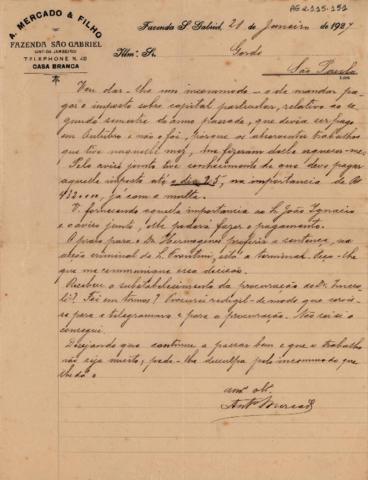 AG 2.115.151
A. MERCADO & FILHO
FAZENDA SÃO GABRIEL
TELEPHONE N. 40
CASA BRANCA
Fazenda S. Gabriel, 21 de Janeiro de 1927
Illmº. Sr. Gordo
São Paulo
Vou dar-lhe um incommodo — o de mandar pa-
gar o imposto sobre capital particular, relativo ao se-
gundo semestre do anno passado, que devia ser pago
em Outubro e não o foi, porque os trabalhos
que tive naquelle mez, me fizeram delle
Pelo aviso junto tive conhecimento de que devo pagar
aquelle imposto até o dia 25, na importancia de
432000, já com a multa.
V. fornecendo aquella importancia ao Sr. João Ignacio
e o aviso junto, elle poderá fazer o pagamento.
O praso para o Dr. Hermogenes proferir a sentença, na
acção criminal de L. está a terminar. Peço-lhe
que me communique essa decisão.
Recebeu o substabelecimento da procuração do Dr.
Foi em termos? Procurei redigil-o de modo que
para o telegramma e para a procuração. Não sei se o
consegui.
Desejando que continue a passar bem e que o trabalho
não seja muito, pede-lhe desculpa pelo incommodo que
lhe dá o
amº. obº.
Antº. Mercado